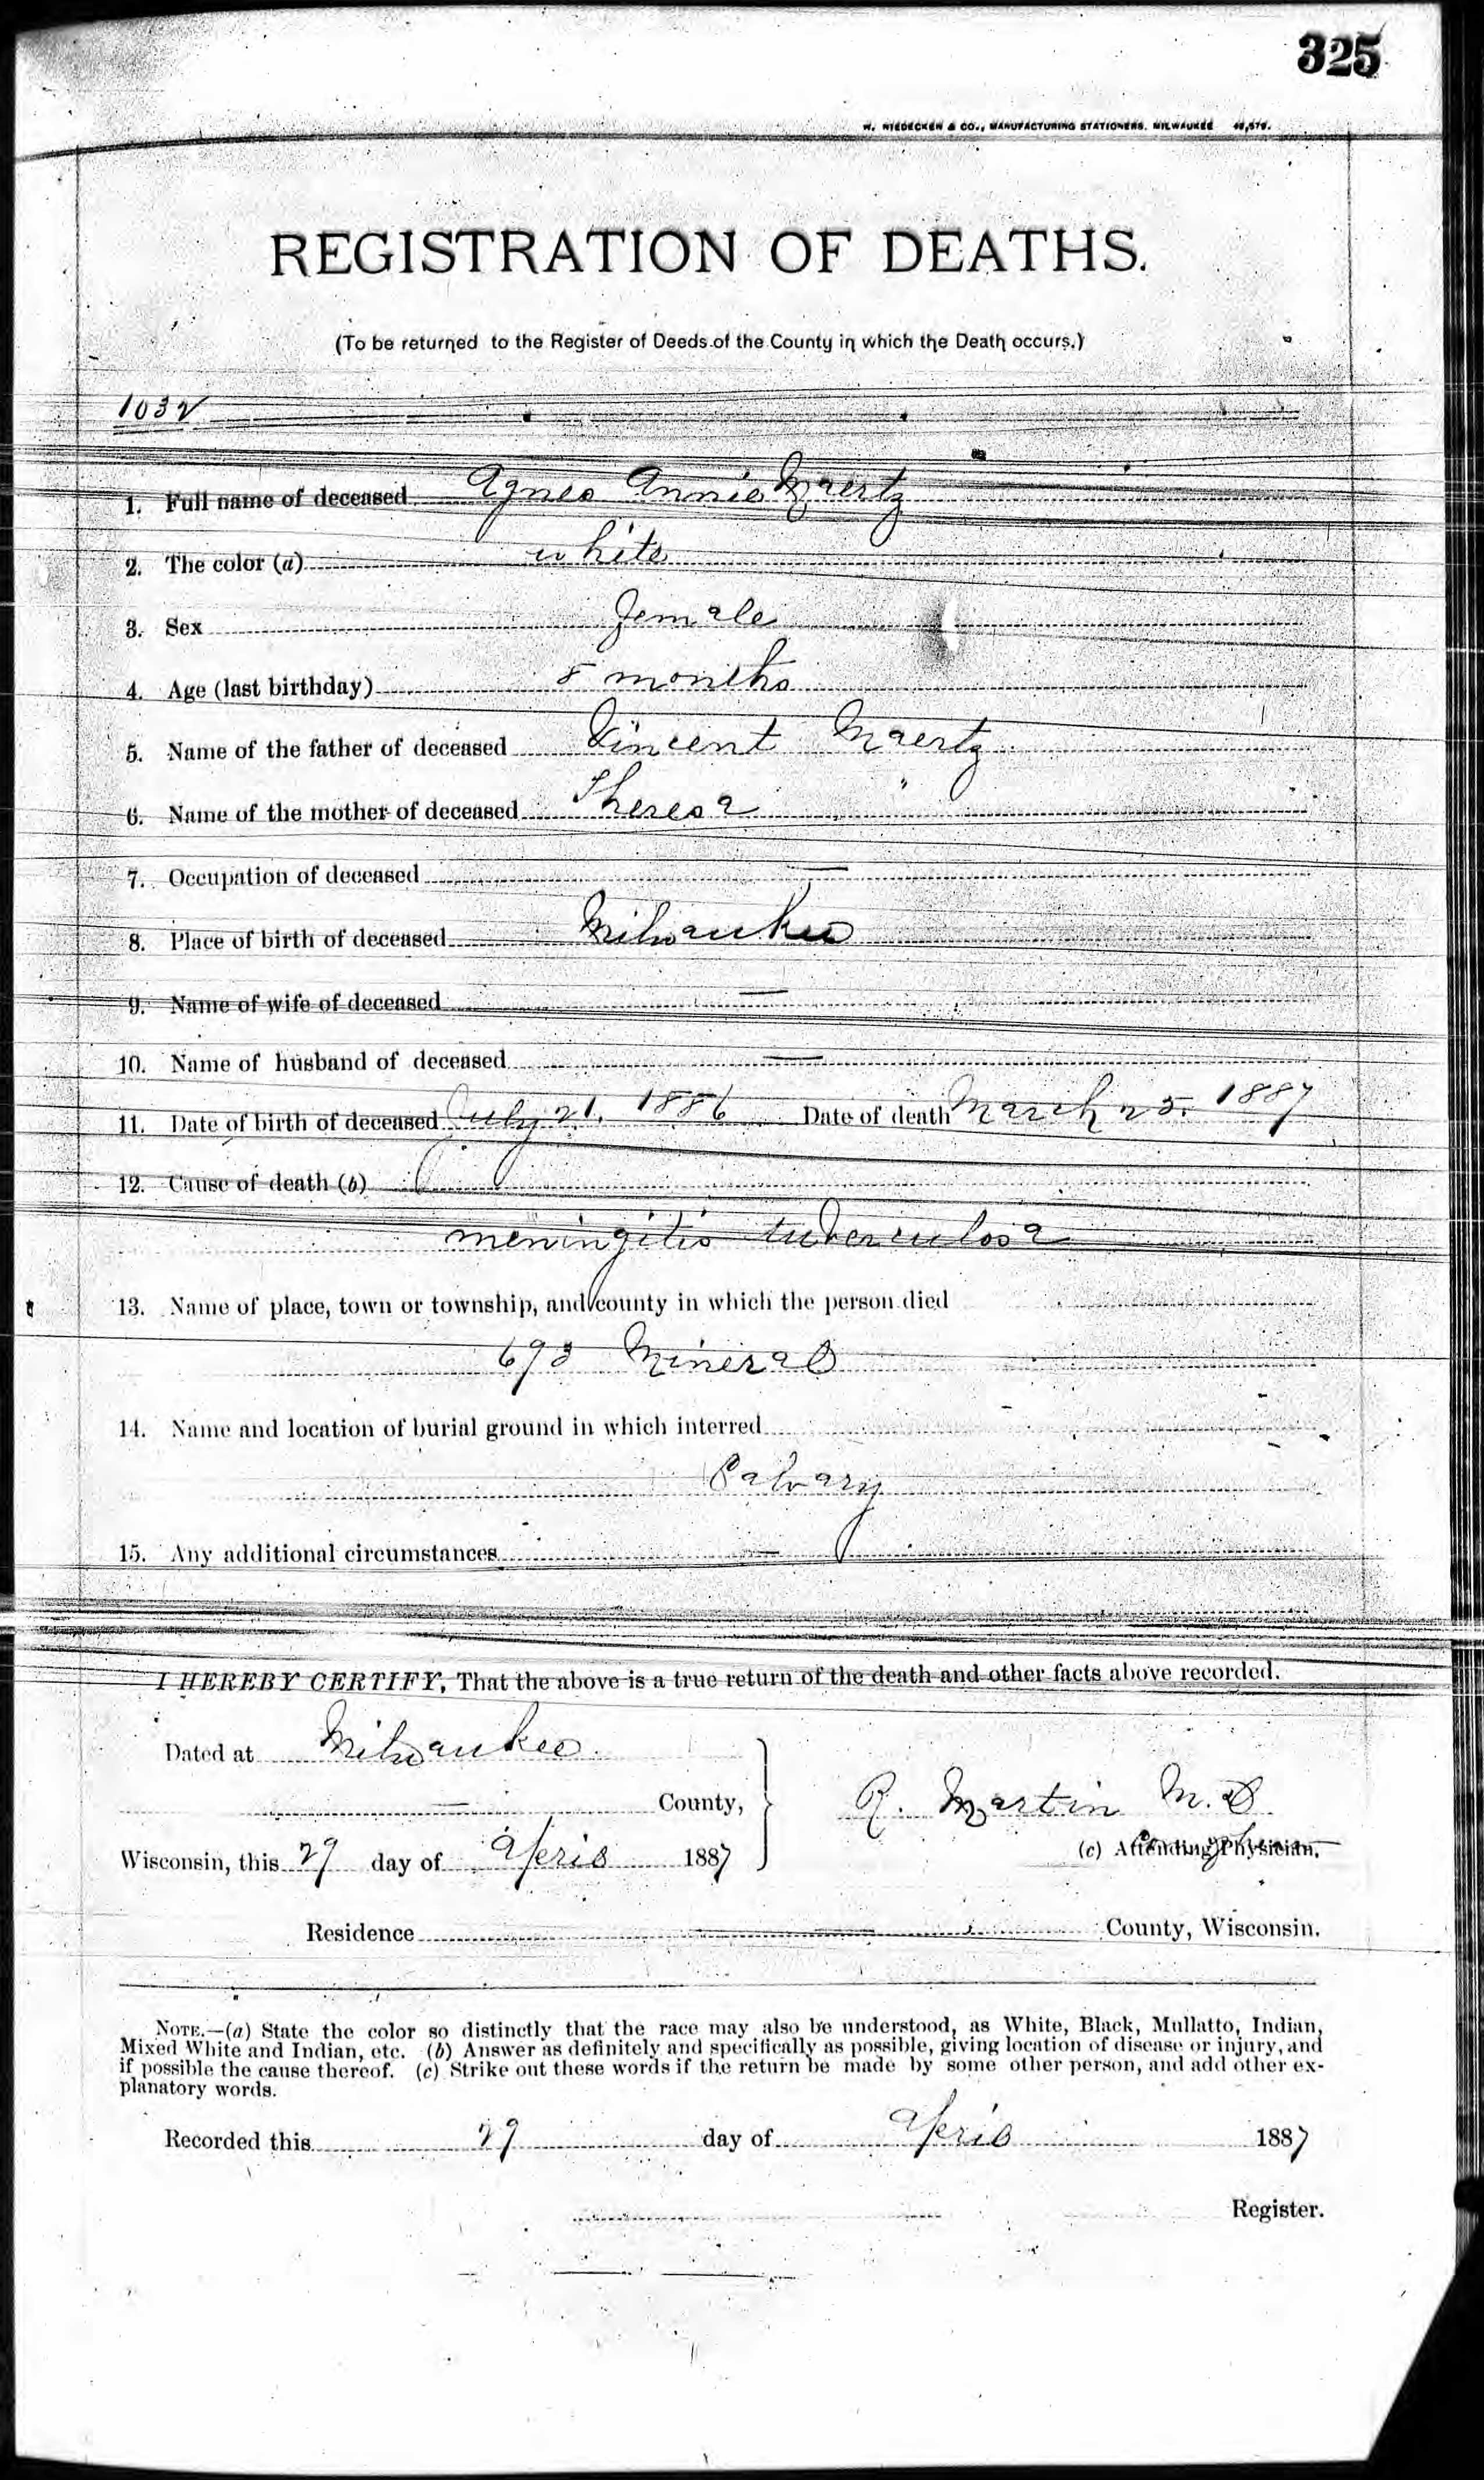 325
W. NIEDECKEN & CO., MANUFACTURING STATIONERS, MILWAUKEE
REGISTRATION OF DEATHS.
(To be returned to the Register of Deeds of the County in which the Death occurs.)
1032
1. Full name of deceased Agnes Annie Maertz
2. The color (a) white
3. Sex female
4. Age (last birthday) 8 months
5. Name of the father of deceased Vincent Maertz
6. Name of the mother of deceased Theresa "
7. Occupation of deceased —
8. Place of birth of deceased Milwaukee
9. Name of wife of deceased —
10. Name of husband of deceased —
11. Date of birth of deceased July 21, 1886 Date of death March 25. 1887
12. Cause of death (b)
meningitis tuberculosa
13. Name of place, town or township, and county in which the person died
693 Mineral
14. Name and location of burial ground in which interred
Calvary
15. Any additional circumstances —
I HEREBY CERTIFY, That the above is a true return of the death and other facts above recorded.
Dated at Milwaukee
— County,
R. Martin M.D
Wisconsin, this 29 day of April 1887
(c) Attending Physician.
Residence — County, Wisconsin.
NOTE.—(a) State the color so distinctly that the race may also be understood, as White, Black, Mullatto, Indian,
Mixed White and Indian, etc. (b) Answer as definitely and specifically as possible, giving location of disease or injury, and
if possible the cause thereof. (c) Strike out these words if the return be made by some other person, and add other ex-
planatory words.
Recorded this 29 day of April 1887
Register.